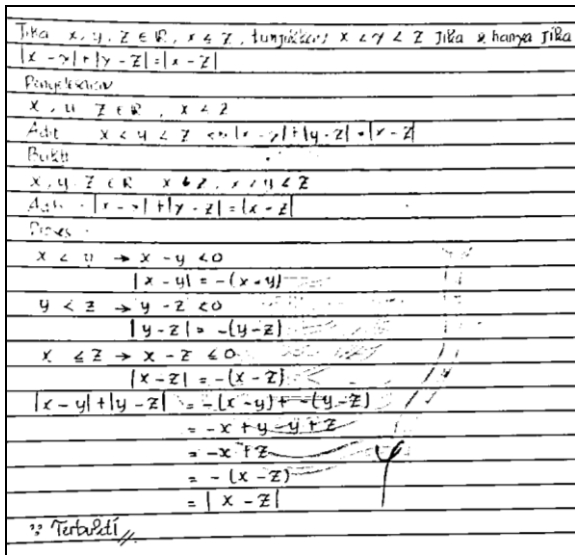 Jika x, y, z ∈ R, x ≤ z, tunjukkan x < y < z jika & hanya jika
|x - y| + |y - z| = |x - z|
Penyelesaian
x, y, z ∈ R, x ≤ z
Adit x < y < z ⟺ |x - y| + |y - z| = |x - z|
Bukti
x, y, z ∈ R x ≤ z, x < y < z
Adit : |x - y| + |y - z| = |x - z|
Proses :
x < y → x - y < 0
|x - y| = -(x - y)
y < z → y - z < 0
|y - z| = -(y - z)
x ≤ z → x - z ≤ 0
|x - z| = -(x - z)
|x - y| + |y - z| = -(x - y) + -(y - z)
= -x + y - y + z
= -x + z
= -(x - z)
= |x - z|
∴ Terbukti //